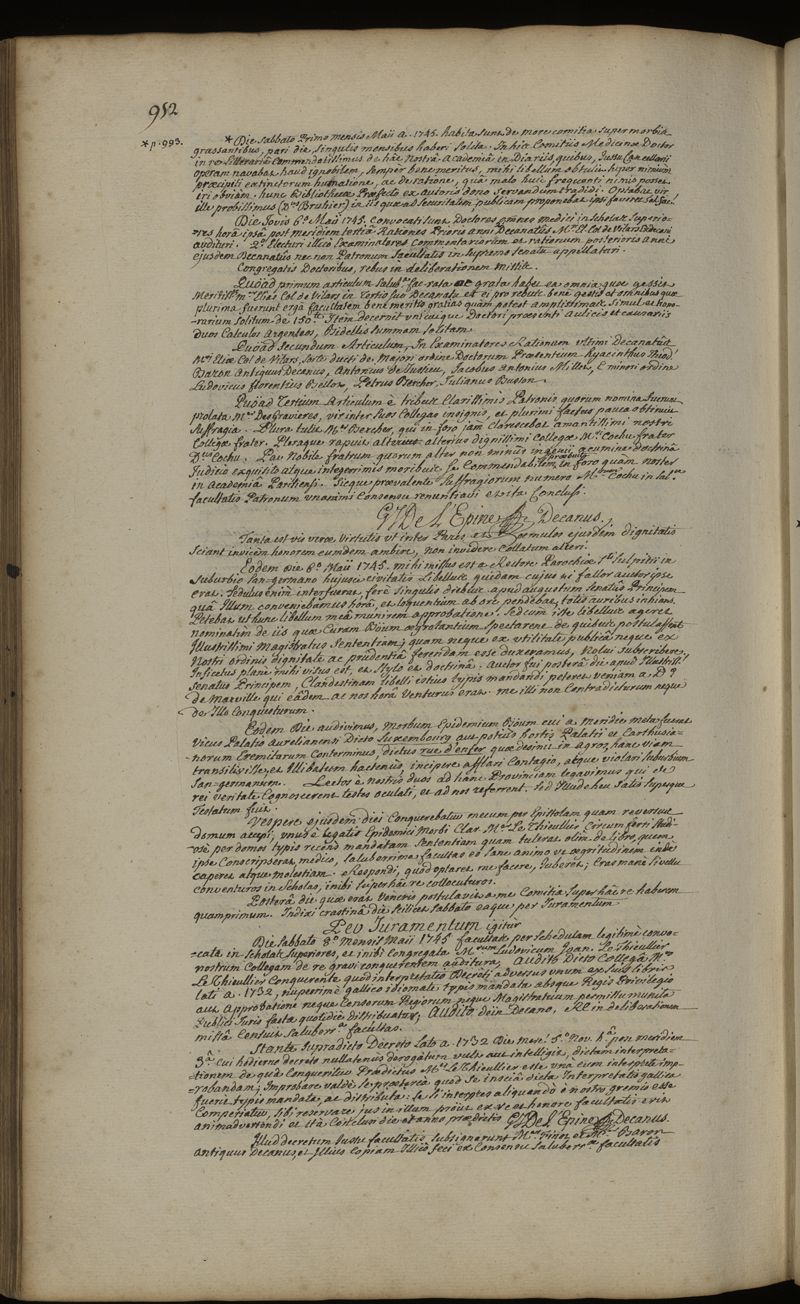 952
* p. 993.
* Die Sabbato Primo mensis Maii a. 1745. habita sunt de more comitia super morbis
grassantibus, pari die, singulis mensibus haberi solita. In his Comitiis Medicinae Doctor
in re Litteraria Commendatissimus de hac Nostra Academia in Diariis, quibus, Jussu Cancellarii
operam navabat haud ignobilem, semper bene meritus, mihi libellum obtulit super nimium
praecipiti extinctorum humatione, ac de ratione, qua malo huic frequenti nimis posset
iri obviam. hunc Bibliothecae Praefecto ex autoris dono servandum tradidi. Optabat vir
ille probissimus (Dnus Bruhier) in iis quae ad securitatem publicam proponebat ipsi faveret Sal. Fac.
Die Jovis 6a Maii 1745. Convocati sunt Doctores omnes medici in scholas Superio-
res hora ipsa post meridiem tertia Rationes Prioris anni Decanatus Mri El. Col de Vilars Decani
audituri. 2o Electuri illico Examinatores Commentariorum et rationum posterioris anni
ejusdem Decanatus nec non Patronum facultatis in supremo senatu appellaturi.
Congregatis Doctoribus, rebus in deliberationem missis.
Quoad primum articulum Salub. fac. rata et grata habet ea omnia quae gessit
Meritiss. Mr Elias Col de Vilars in Tertio suo Decanatu et ei pro rebus bene gestis et omnibus quae
plurima fuerunt erga facultatem bene meritis gratias quam potest amplissimas simul et hono-
-rarium solitum de 150 Item decernit unicuique Doctori praesenti aulicis et causariis
Duos Calculos argenteos, Bidellis summam solitam.
Quoad secundum Articulum, In Examinatores Rationum ultimi Decanatus
Mri Eliae Col de Vilars, sorte ducti de Majori ordine Doctorum Praesentum hyacinthus Theod.
Baron Antiquus Decanus, Antonius de Jussieu, Jacobus Antonius Millet, E minori ordine
Ludovicus florentius Bellot, Petrus Bercher, Julianus Busson.
Quoad Tertium Articulum e tribus Clarissimis Patronis quorum nomina fuerunt
prolata Mr DesGravieres, vir inter suos Collegas insignis, et plurimi factus pauca obtinuit
Suffragia. Plura tulit Mr Bercher, qui in foro jam clarescebat amantissimi nostri
Collegae frater. Pleraque rapuit alter alterius dignissimi Collegae Mri Cochu frater
Dnus Cochu. Par Nobile fratrum quorum alter non minus ingenii acumine doctrina
Judicio exquisito atque integerrimis moribus se Commendabilem praebuit in foro quam noster
in Academia Parisiensi. Sicque praevalente suffragiorum numero Mrum Cochu in sal.
facultatis Patronum unanimi Consensu renuntiavi et ita Conclusi.
GJ De L'Epine Decanus.
Tanta est vis verae Virtutis ut inter Pares et Aemulos ejusdem dignitatis
Sciant invicem honorem eumdem ambire, non invidere Collatum alteri.
Eodem Die 6a Maii 1745. mihi missus est a Rectore Parochiae Sti Sulpitii in
Suburbio San-germano hujusce civitatis Libellus quidam cujus ni fallor autor ipse
erat. Sedulus enim interfuerat, fere singulis diebus apud augustum Senatus Principem
qua Illum conveniebamus hora, et loquentium ab ore pendebat, totis auribus inhians.
Petebat ut hunc libellum mea munirem approbatione. Sed cum iste libellus ageret
nominatim de iis quae Curam Boum aegrotantium spectarent de quibus postulasset
Illustrissimi Magistratus Sententiam; quam neque ex utilitate publica neque ex
Nostri ordinis dignitate ac prudentia ferendam esse duxeramus, Nolui subscribere;
Inficetus plane mihi visus est, et stylo et doctrina. Autor fui postera die apud Illustriss.
Senatus Principem, Clandestinam libelli istius typis mandandi peteret veniam a D.
de Marville qui eadem ac nos hora venturus erat. me illi non Contradicturum neque
de Illo Conquesturum.
Eodem Die audivimus, Morbum Epidemium Boum cui a Meridie meta fuerat
Vicus Palatio Aurelianensi Dicto Luxembourg aut potius hortis Palatii et Carthusia-
norum Eremitarum Conterminus, dictus rue d'enfer quae desinit in agros, hanc viam
transilisse, et Illibatum hactenus, incipere afflari Contagio, atque violari suburbium
San-germanum. Lectos e nostris duos ad hanc Provinciam legavimus qui et
rei veritatem Cognoscerent testes oculati, et ad nos referrent. Sed Illud heu satis superque
Testatum fuit.
Vespere ejusdem diei Conquerebatur mecum per Epistolam quam reversus
domum accepi, unus e legatis Epidemici Morbi Clar. Mr Le Thieullier Circum ferri studi-
ose per domos typis recens mandatam Sententiam quam tulerat olim de libro, quem
ipse Conscripserat, medico, saluberrima facultas et sane animo ut aegritudinem inde
caperet atque molestiam. Respondi, quod optaret me facere, Juberet; Cras mane si vellet
conventuros in Scholas, inibi super hac re collocuturos.
Postera die quae erat Veneris postulavit a me Comitia super hac re haberem
quam primum. Indixi crastina die scilicet Sabbato eaque per Juramentum
Per Juramentum igitur
Die Sabbato 8a Mensis Maii 1745 facultas per schedulam legitime convo-
-cata in scholas superiores, et inibi Congregata Mrum Ludovicum Joan. Le Thieullier
nostrum Collegam de re gravi conquerentem auditura, Audito Dicto Collega Mro
Le Thieullier Conquerente quod interpretatio Decreti adversus unum ex suis libris
lati a. 1732, nuperrime gallico idiomate typis mandata absque Regis Privilegio
aut Approbatione neque Censorum Regiorum neque Magistratuum permissu munita
Publici Juris facta quotidie distribuatur; Audito dein Decano, RE in deliberationem
missa Censuit saluberr. facultas.
Stante supradicto Decreto Lato a. 1732 Die merc. 5a Nov. ha. post meridiem
3a Cui hodierno decreto nullatenus derogatum vult aut intelligit, dictam interpreta-
-tionem de qua Conqueritur Praedictus Mr Le Thieullier esse una cum interprete imp-
-robandam; Improbare valde se praeterea quod se inscia dicta Interpretatio gallica
fuerit typis mandata, ac distributa: se si interpres aliquando e nostro gremio esse
Comperiatur, sibi reservare jus in illum prout ex re et honore facultatis erit
animadvertendi et ita Conclusum die et anno praedictis GJ De L'Epine Decanus.
Illud decretum Jussu facultatis subsignarunt Mri Finot et Mr Baron
Antiquus Decanus, et Illius Copiam Illico feci ex Consensu saluberr. facultatis